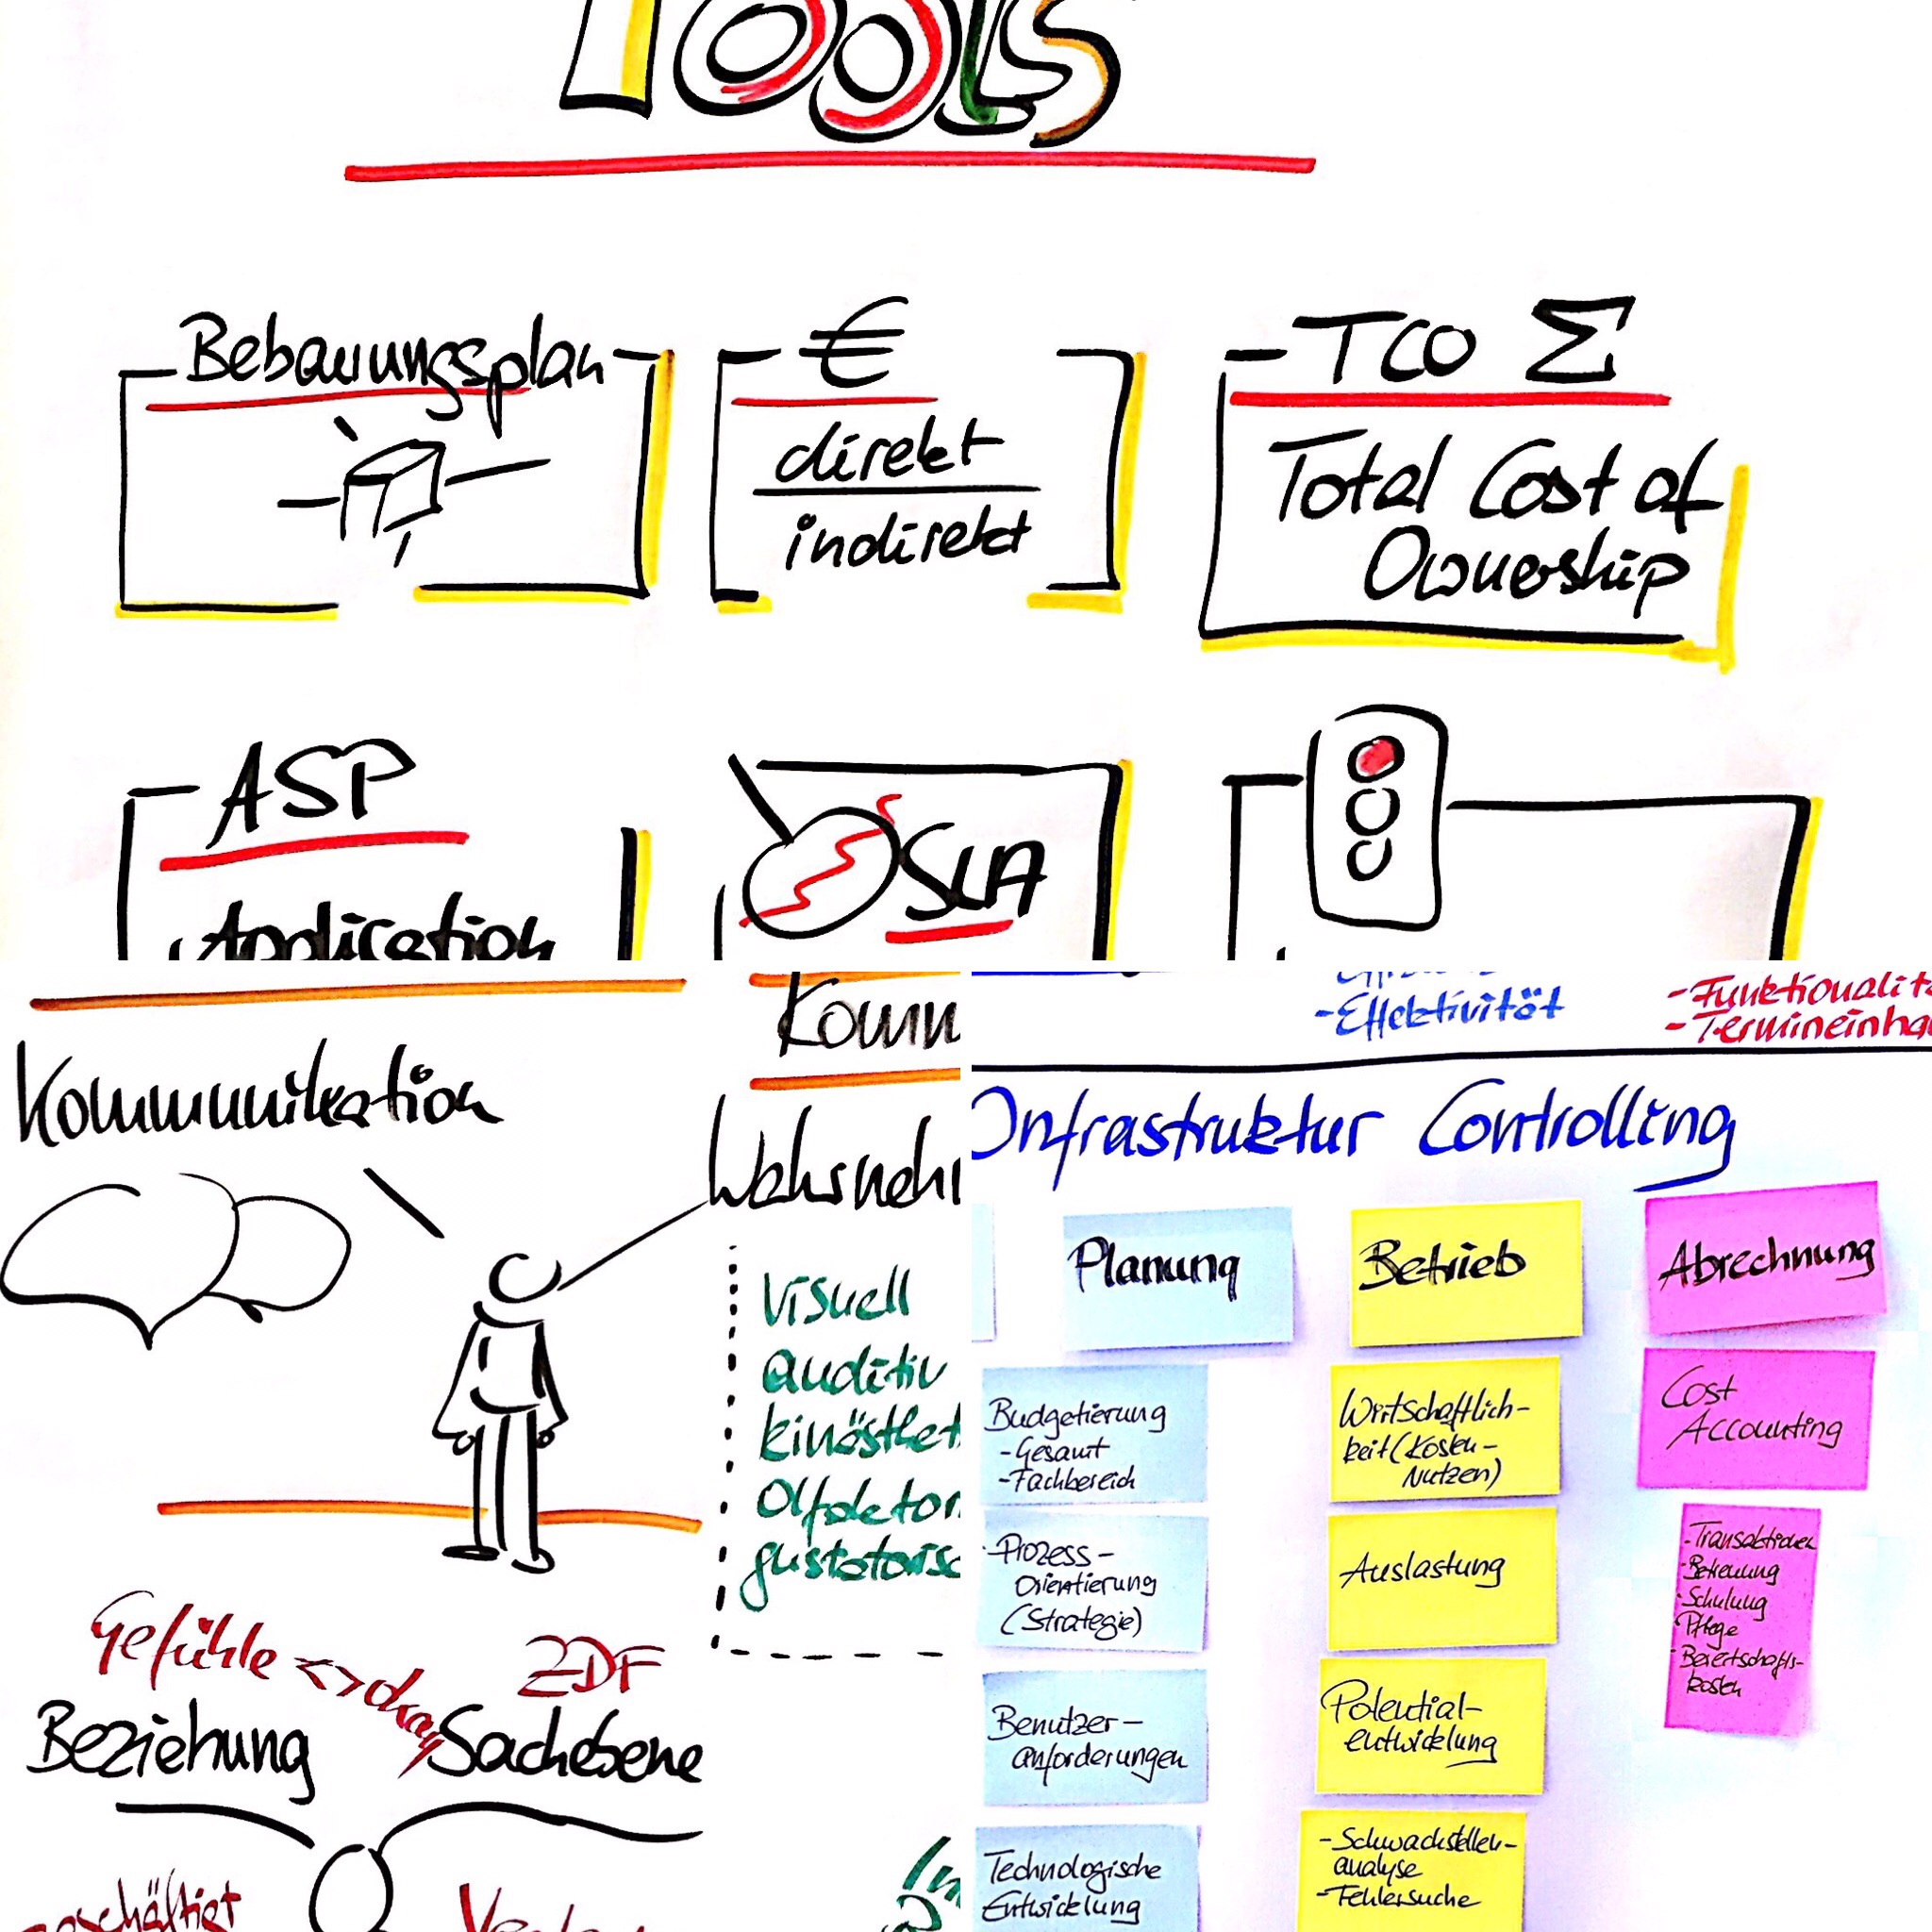 Tools
Bebauungsplan
€
direkt
indirekt
TCO Σ
Total Cost of
Ownership
ASP
Application
SLA
Kommunikation
Gefühle <>
ZDF
Beziehung
Sachebene
Komm
Wahrneh
Visuell
auditiv
kinästhet
Olfaktor
gustatorisc
-Effektivität
-Funktionalit
-Termineinha
Infrastruktur Controlling
Planung
Budgetierung
-Gesamt
-Fachbereich
-Prozess-
Orientierung
(Strategie)
Benutzer-
anforderungen
Technologische
Entwicklung
Betrieb
Wirtschaftlich-
keit (Kosten-
Nutzen)
Auslastung
Potential-
entwicklung
-Schwachstellen-
analyse
-Fehlersuche
Abrechnung
Cost
Accounting
-Transaktionen
-Betreuung
-Schulung
-Pflege
-Bereitschafts-
kosten